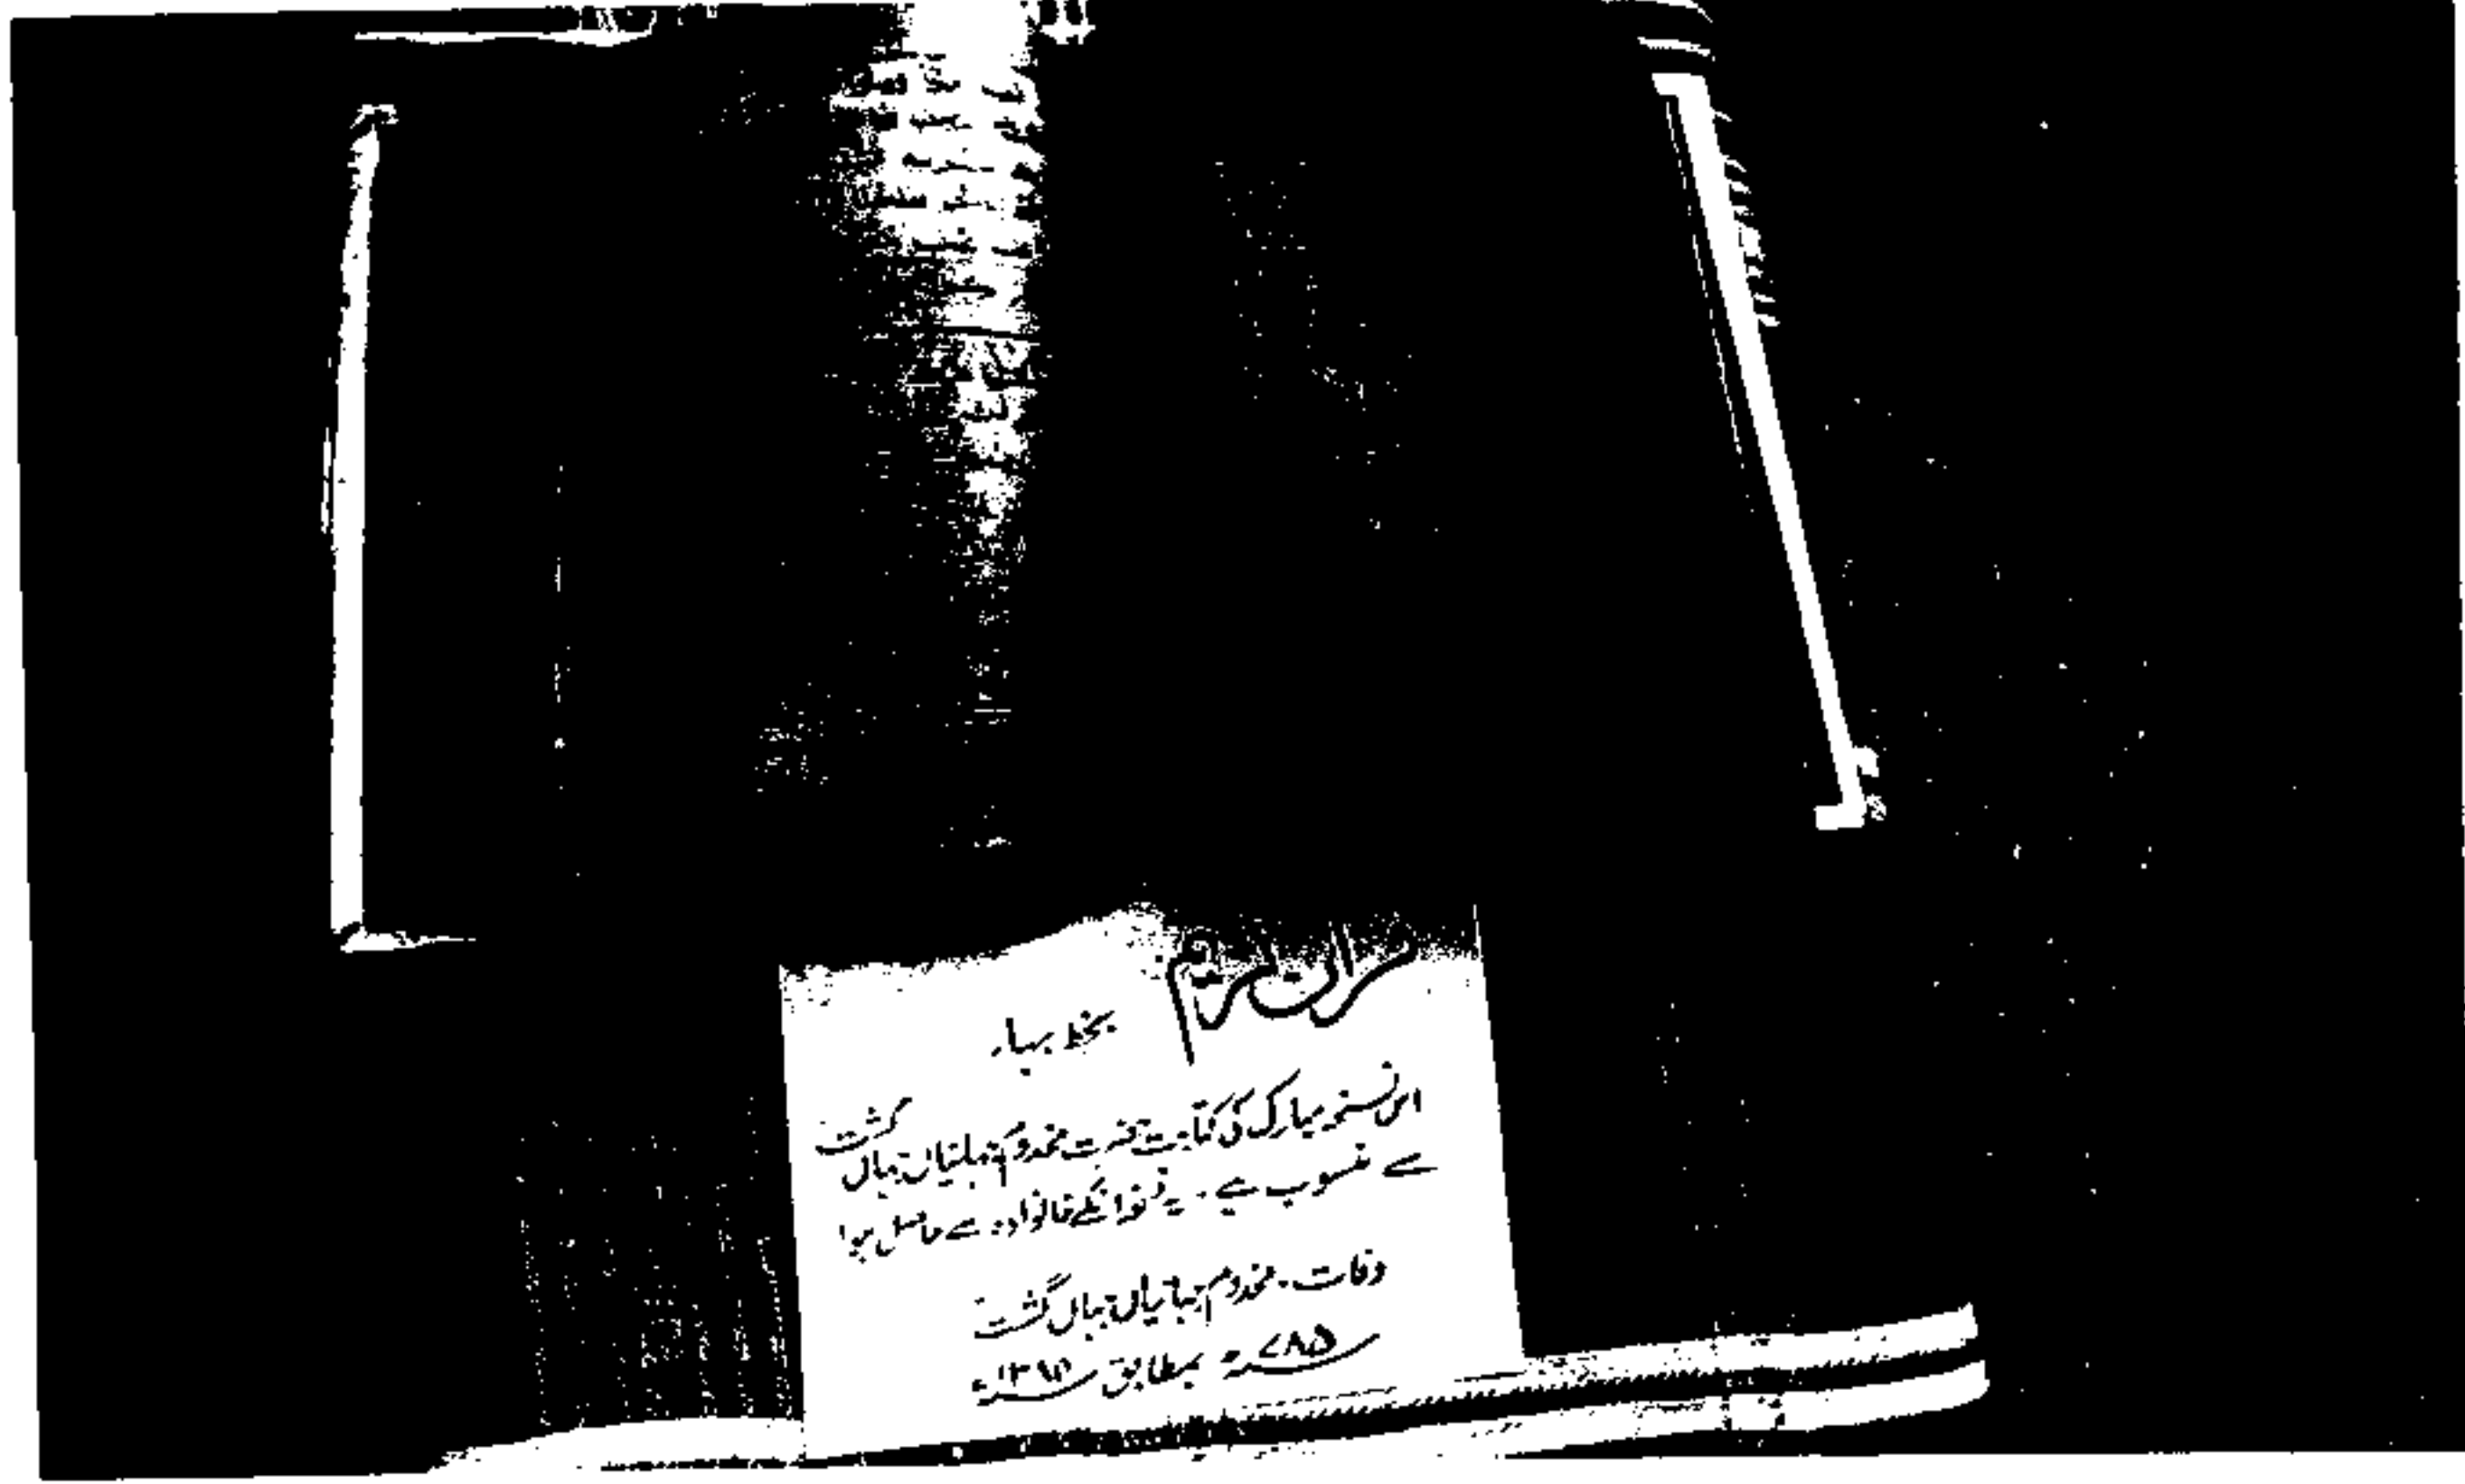 قرآن شریف
بخط بہار
اس نسخہ مبارک کی کتابت حضرت مخدوم جہانیاں جہاں گشت
سے منسوب ہے۔ یہ نسخہ انکے خانوادہ سے حاصل ہوا
وفات۔ مخدوم جہانیاں جہاں گشت
۷۸۵ھ بمطابق ۱۳۸۴ء